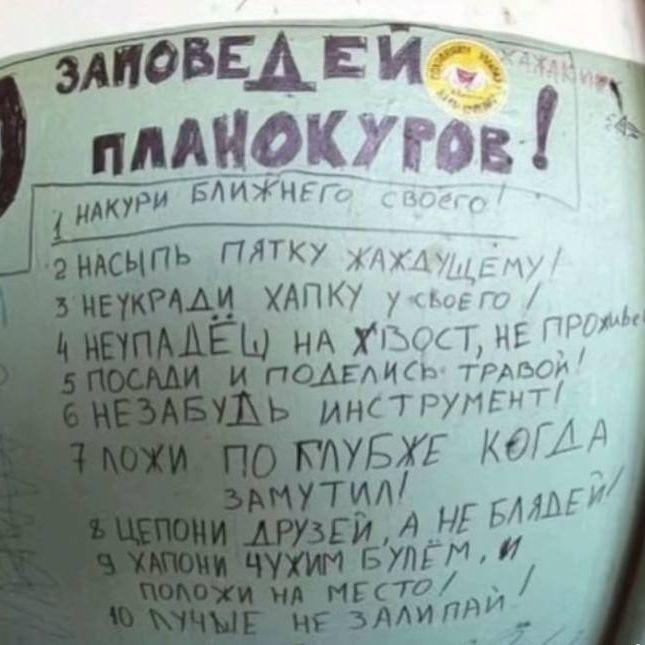 ЗАПОВЕДЕЙ
ПЛАНОКУРОВ!
1 НАКУРИ БЛИЖНЕГО СВОЕГО!
2 НАСЫПЬ ПЯТКУ ЖАЖДУЩЕМУ!
3 НЕУКРАДИ ХАПКУ У СВОЕГО!
4 НЕУПАДЁШ НА ХВОСТ, НЕ ПРОживе
5 ПОСАДИ И ПОДЕЛИСЬ ТРАВОЙ!
6 НЕЗАБУДЬ ИНСТРУМЕНТ!
7 ЛОЖИ ПО ГЛУБЖЕ КОГДА
ЗАМУТИЛ!
8 ЦЕПОНИ ДРУЗЕЙ, А НЕ БЛЯДЕЙ!
9 ХАПОНИ ЧУЖИМ БУЛЁМ, И
ПОЛОЖИ НА МЕСТО!
10 ЛУЧЫЕ НЕ ЗАЛИПАЙ!